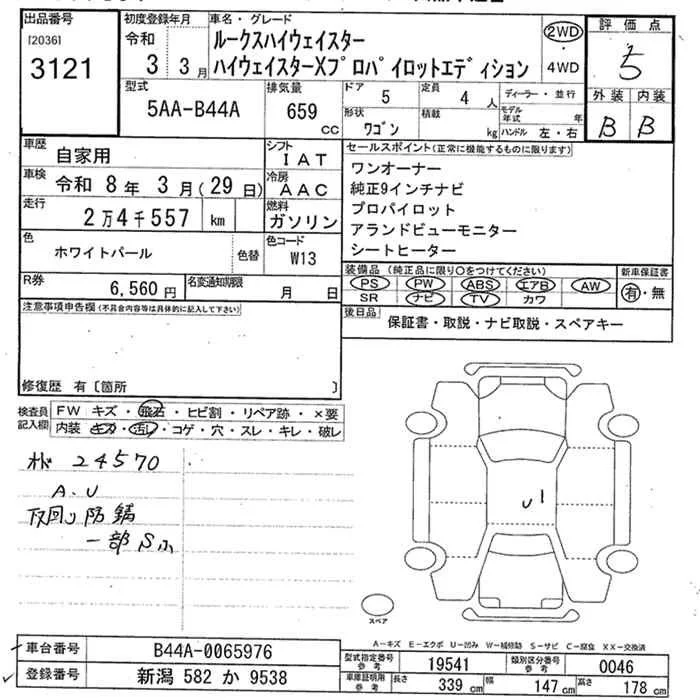 出品番号 初度登録年月 車名・グレード 評価点
[2036] 令和 ルークスハイウェイスター 2WD
3121 3 3月 ハイウェイスターXプロパイロットエディション ・4WD 5
型式 排気量 ドア 5 定員 4人 ディーラー・並行 外装 内装
5AA-B44A 659 cc 形状 ワゴン 積載 kg モデル年式 年 B B
ハンドル 左・右
車歴 自家用 シフト IAT セールスポイント(正常に機能するものに限ります)
車検 令和 8年 3月(29日) 冷房 AAC ワンオーナー
純正9インチナビ
走行 2万4千557 km 燃料 ガソリン プロパイロット
アランドビューモニター
色 ホワイトパール 色替 色コード W13 シートヒーター
R券 6,560円 名変通知期限 月 日 装備品(純正品に限り○をつけてください) 新車保証書
PS PW ABS エアB AW 有・無
SR ナビ TV カワ
注意事項申告欄(不具合内容等は具体的に記入して下さい) 後日品 保証書・取説・ナビ取説・スペアキー
修復歴 有〔箇所 〕
検査員記入欄 FW キズ・飛石・ヒビ割・リペア跡・×要
内装 キズ・汚レ・コゲ・穴・スレ・キレ・破レ
オド 24570
A.U
下回り防錆
一部Sふ
U1
スペア
A-キズ E-エクボ U-凹み W-補修跡 S-サビ C-腐食 XX-交換済
車台番号 B44A-0065976 型式指定番号 参考 19541 類別区分番号 参考 0046
登録番号 新潟 582 か 9538 車庫証明用 参考 長さ 339 cm 幅 147 cm 高さ 178 cm